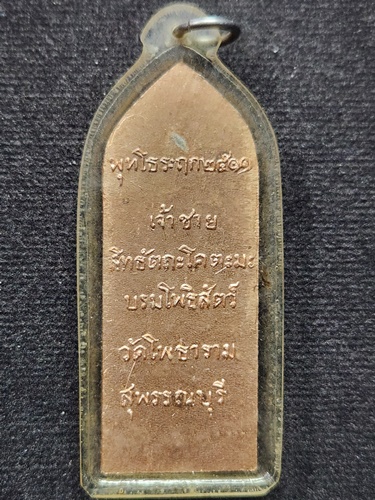 พุทโธระฤก๒๕๑๑
เจ้าชาย
สิทธัตถะโคตะมะ
บรมโพธิสัตว์
วัดโพธาราม
สุพรรณบุรี